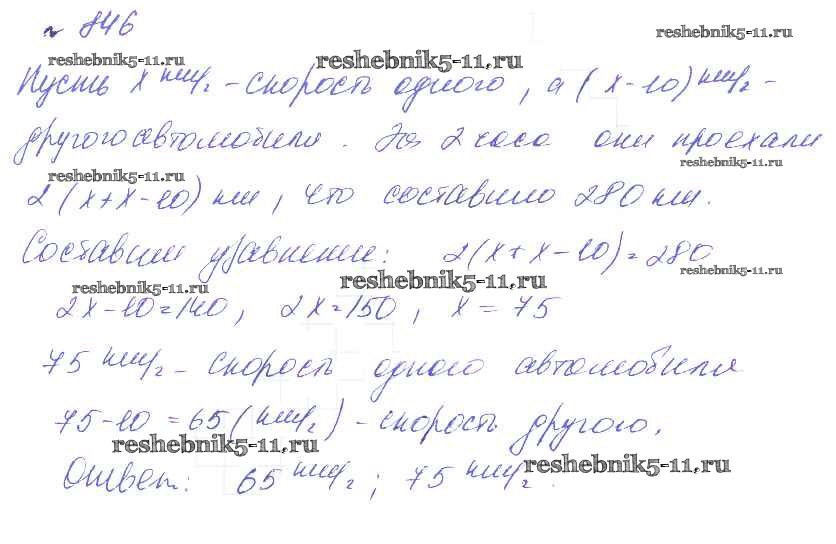 № 846
reshebnik5-11.ru
reshebnik5-11.ru reshebnik5-11.ru
Пусть x км/ч - скорость одного, а (x-10) км/ч -
другого автомобиля. За 2 часа они проехали
reshebnik5-11.ru
reshebnik5-11.ru
2(x+x-10) км, что составило 280 км.
Составим уравнение: 2(x+x-10)=280
reshebnik5-11.ru
reshebnik5-11.ru reshebnik5-11.ru
2x-10=140, 2x=150, x=75
75 км/ч - скорость одного автомобиля
75-10=65(км/ч) - скорость другого.
reshebnik5-11.ru
reshebnik5-11.ru
Ответ: 65 км/ч; 75 км/ч.